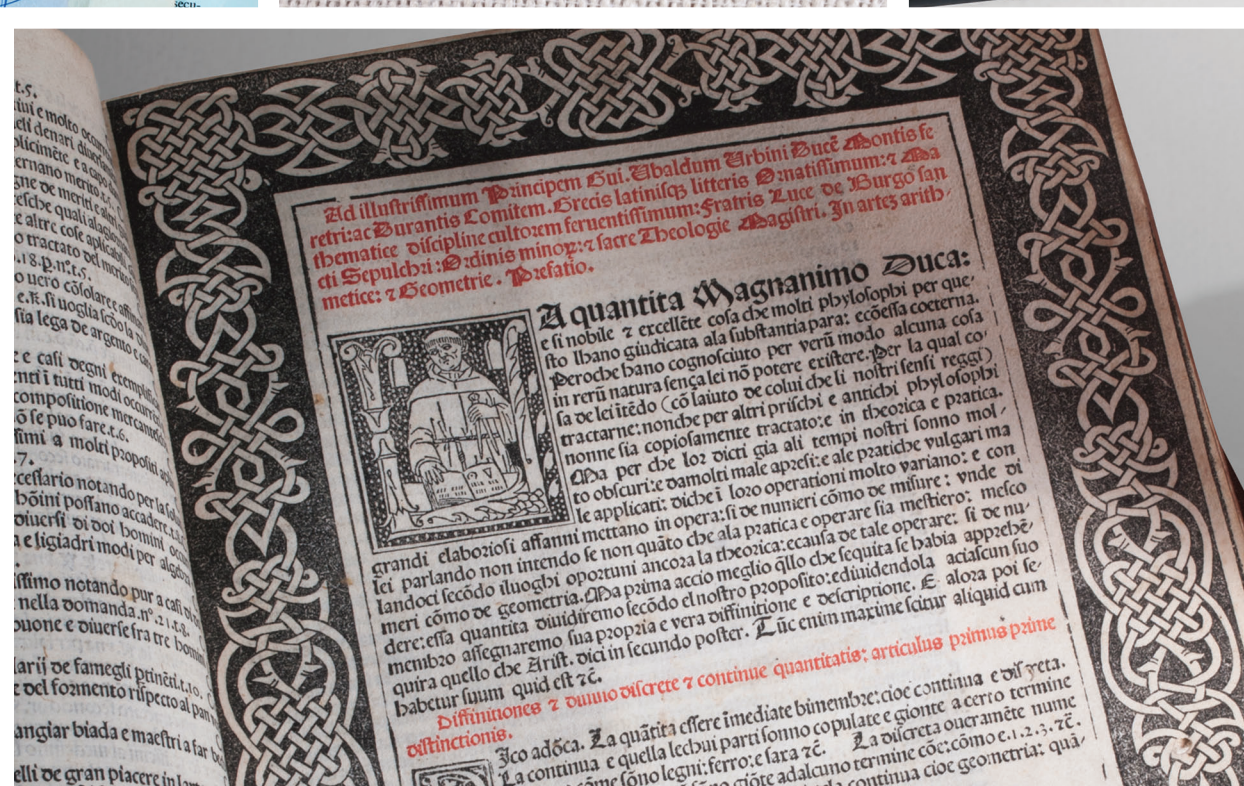 secu-
t.5.
tiui e molto occorr
plicimēte e a capo
ternano merito.t.5.
gne de meriti e altri
tesche quali alagio
e altre cose aplicabili
o tractato del merito
.18.p.n°.t.5.
o uero cōsolare e affinar
e.k.si uoglia scōo la
sia lega de argento e
e casi degni exemplific
nti i tutti modi occurrē
compositione mercantesc
ō se puo fare.t.6.
simi a molti propositi
.7.
ccessario notando per la solu
hōini possano accadere.t.
diuersi di doi homini
a e ligiadri modi per algebra
issimo notando pur a casi
nella domanda.n°.21.t.8.
buone e diuerse fra tre homini
larij de famegli ptinēti.t.10.
e del formento rispecto al pan
angiar biada e maestri a far
elli de gran piacere in
Ad illustrissimum Principem Gui.Ubaldum Urbini Ducē Montis fe
retri:ac Durantis Comitem.Grecis latinisqꝫ litteris Ornatissimum:⁊ Ma
thematice discipline cultorem feruentissimum:Fratris Luce de Burgo san
cti Sepulchri:Ordinis minoꝝ:⁊ sacre Theologie Magistri. In artez arith
metice: ⁊ Geometrie. Prefatio.
A quantita Magnanimo Duca:
e si nobile ⁊ excellēte cosa che molti phylosophi per que-
sto lhano giudicata ala substantia para: ecōessa coeterna.
Peroche hano cognosciuto per verū modo alcuna cosa
in rerū natura sença lei nō potere existere.Per la qual co
sa de lei itēdo (cō laiuto de colui che li nostri sensi reggi)
tractarne:nonche per altri prischi e antichi phylosophi
nonne sia copiosamente tractato:e in theorica e pratica.
Ma per che lor dicti gia ali tempi nostri sonno mol-
to obscuri:e damolti male apresi:e ale pratiche vulgari ma
le applicati: diche i loro operationi molto variano: e con
grandi elaboriosi affanni mettano in opera:si de numeri cōmo de misure: vnde di
lei parlando non intendo se non quāto che ala pratica e operare sia mestiero: mesco
landoci secōdo iluoghi oportuni ancora la theorica:ecausa de tale operare: si de nu-
meri cōmo de geometria.Ma prima accio meglio q̄llo che sequita se habia apprehē
dere:essa quantita diuidiremo secōdo elnostro proposito:ediuidendola aciascun suo
membro assegnaremo sua propria e vera diffinitione e descriptione. E alora poi se-
quira quello che Arist. dici in secundo poster. Tūc enim maxime scitur aliquid cum
habetur suum quid est ⁊c̄.
Diffinitiones ⁊ diuisio discrete ⁊ continue quantitatis: articulus primus prime
distinctionis.
Ico adōca. La quātita essere imediate bimembre:cioe continua e discreta.
La continua e quella lechui parti sonno copulate e gionte a certo termine
cōme sōno legni:ferro:e saxa ⁊c̄. La discreta oueramēte nume
giōte adalcuno termine cōe:cōmo e.1.2.3.⁊c̄.
la continua cioe geometria: quā